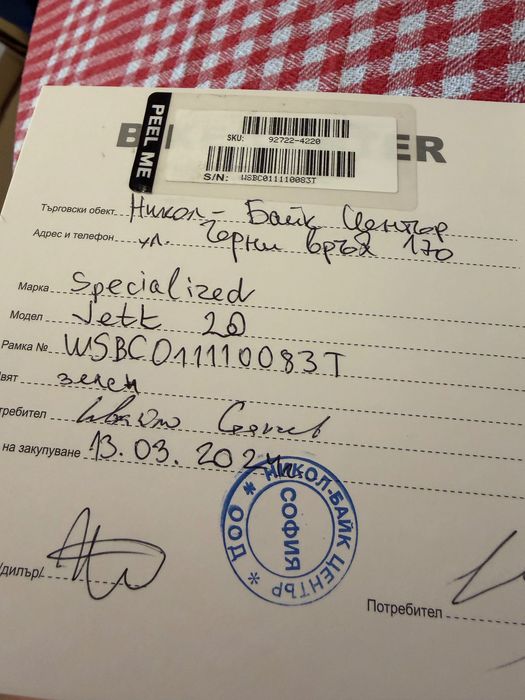 PEEL ME
B ER
SKU: 92722-4220
S/N: WSBC011110083T
Търговски обект Никол - Байк Център
Адрес и телефон ул. Черни връх 170
Марка Specialized
Модел Jett 20
Рамка № WSBC011110083T
вят зелен
требител Ивайло
на закупуване 13.03.2024г.
НИКОЛ-БАЙК ЦЕНТЪР * ДОО *
СОФИЯ
/дилър/
Потребител